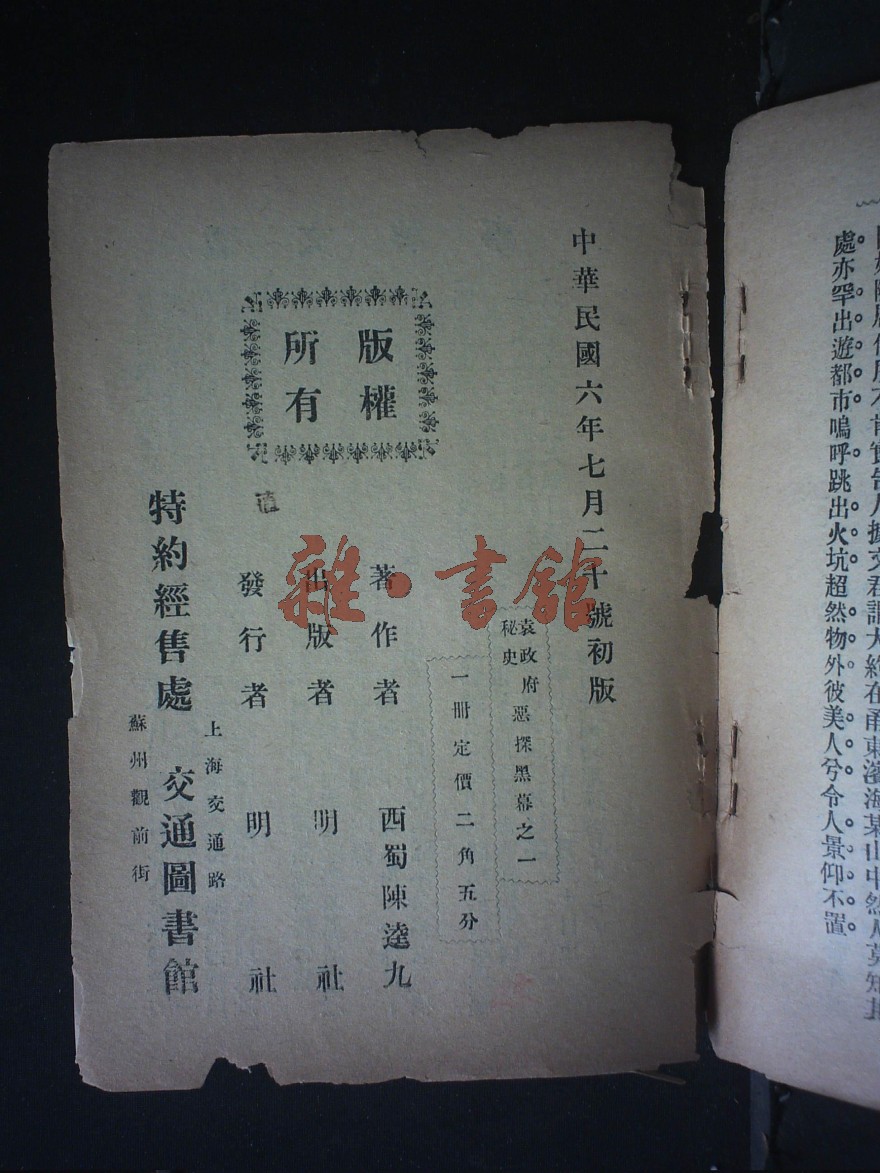 處亦罕出遊都市嗚呼跳出火坑超然物外彼美人兮令人景仰不置
中華民國六年七月二十號初版
袁政府
秘史
惡探黑幕之一
一冊定價二角五分
版權
所有
著作者 西蜀陳達九
出版者 明社
發行者 明社
上海交通路
特約經售處 交通圖書館
蘇州觀前街
雜·書館